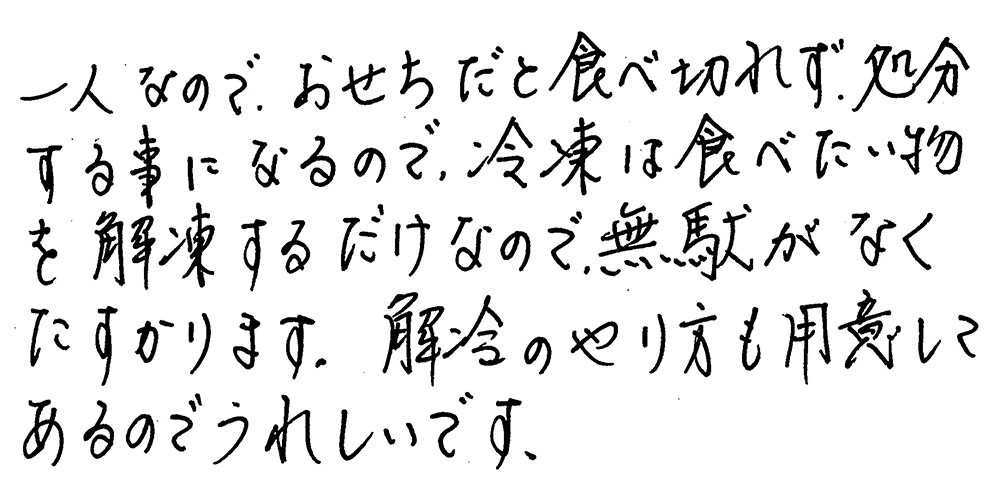 一人なので、おせちだと食べ切れず、処分
する事になるので、冷凍は食べたい物
を解凍するだけなので、無駄がなく
たすかります。解冷のやり方も用意して
あるのでうれしいです、